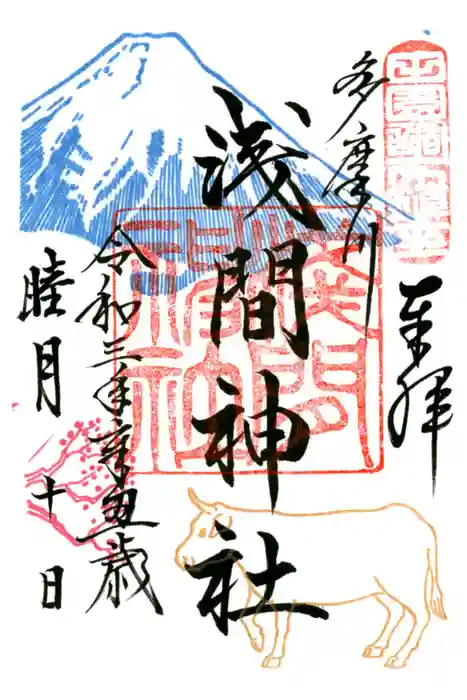 奉拝
多摩川
浅間神社
令和三年辛丑歳
睦月十日
浅間神社